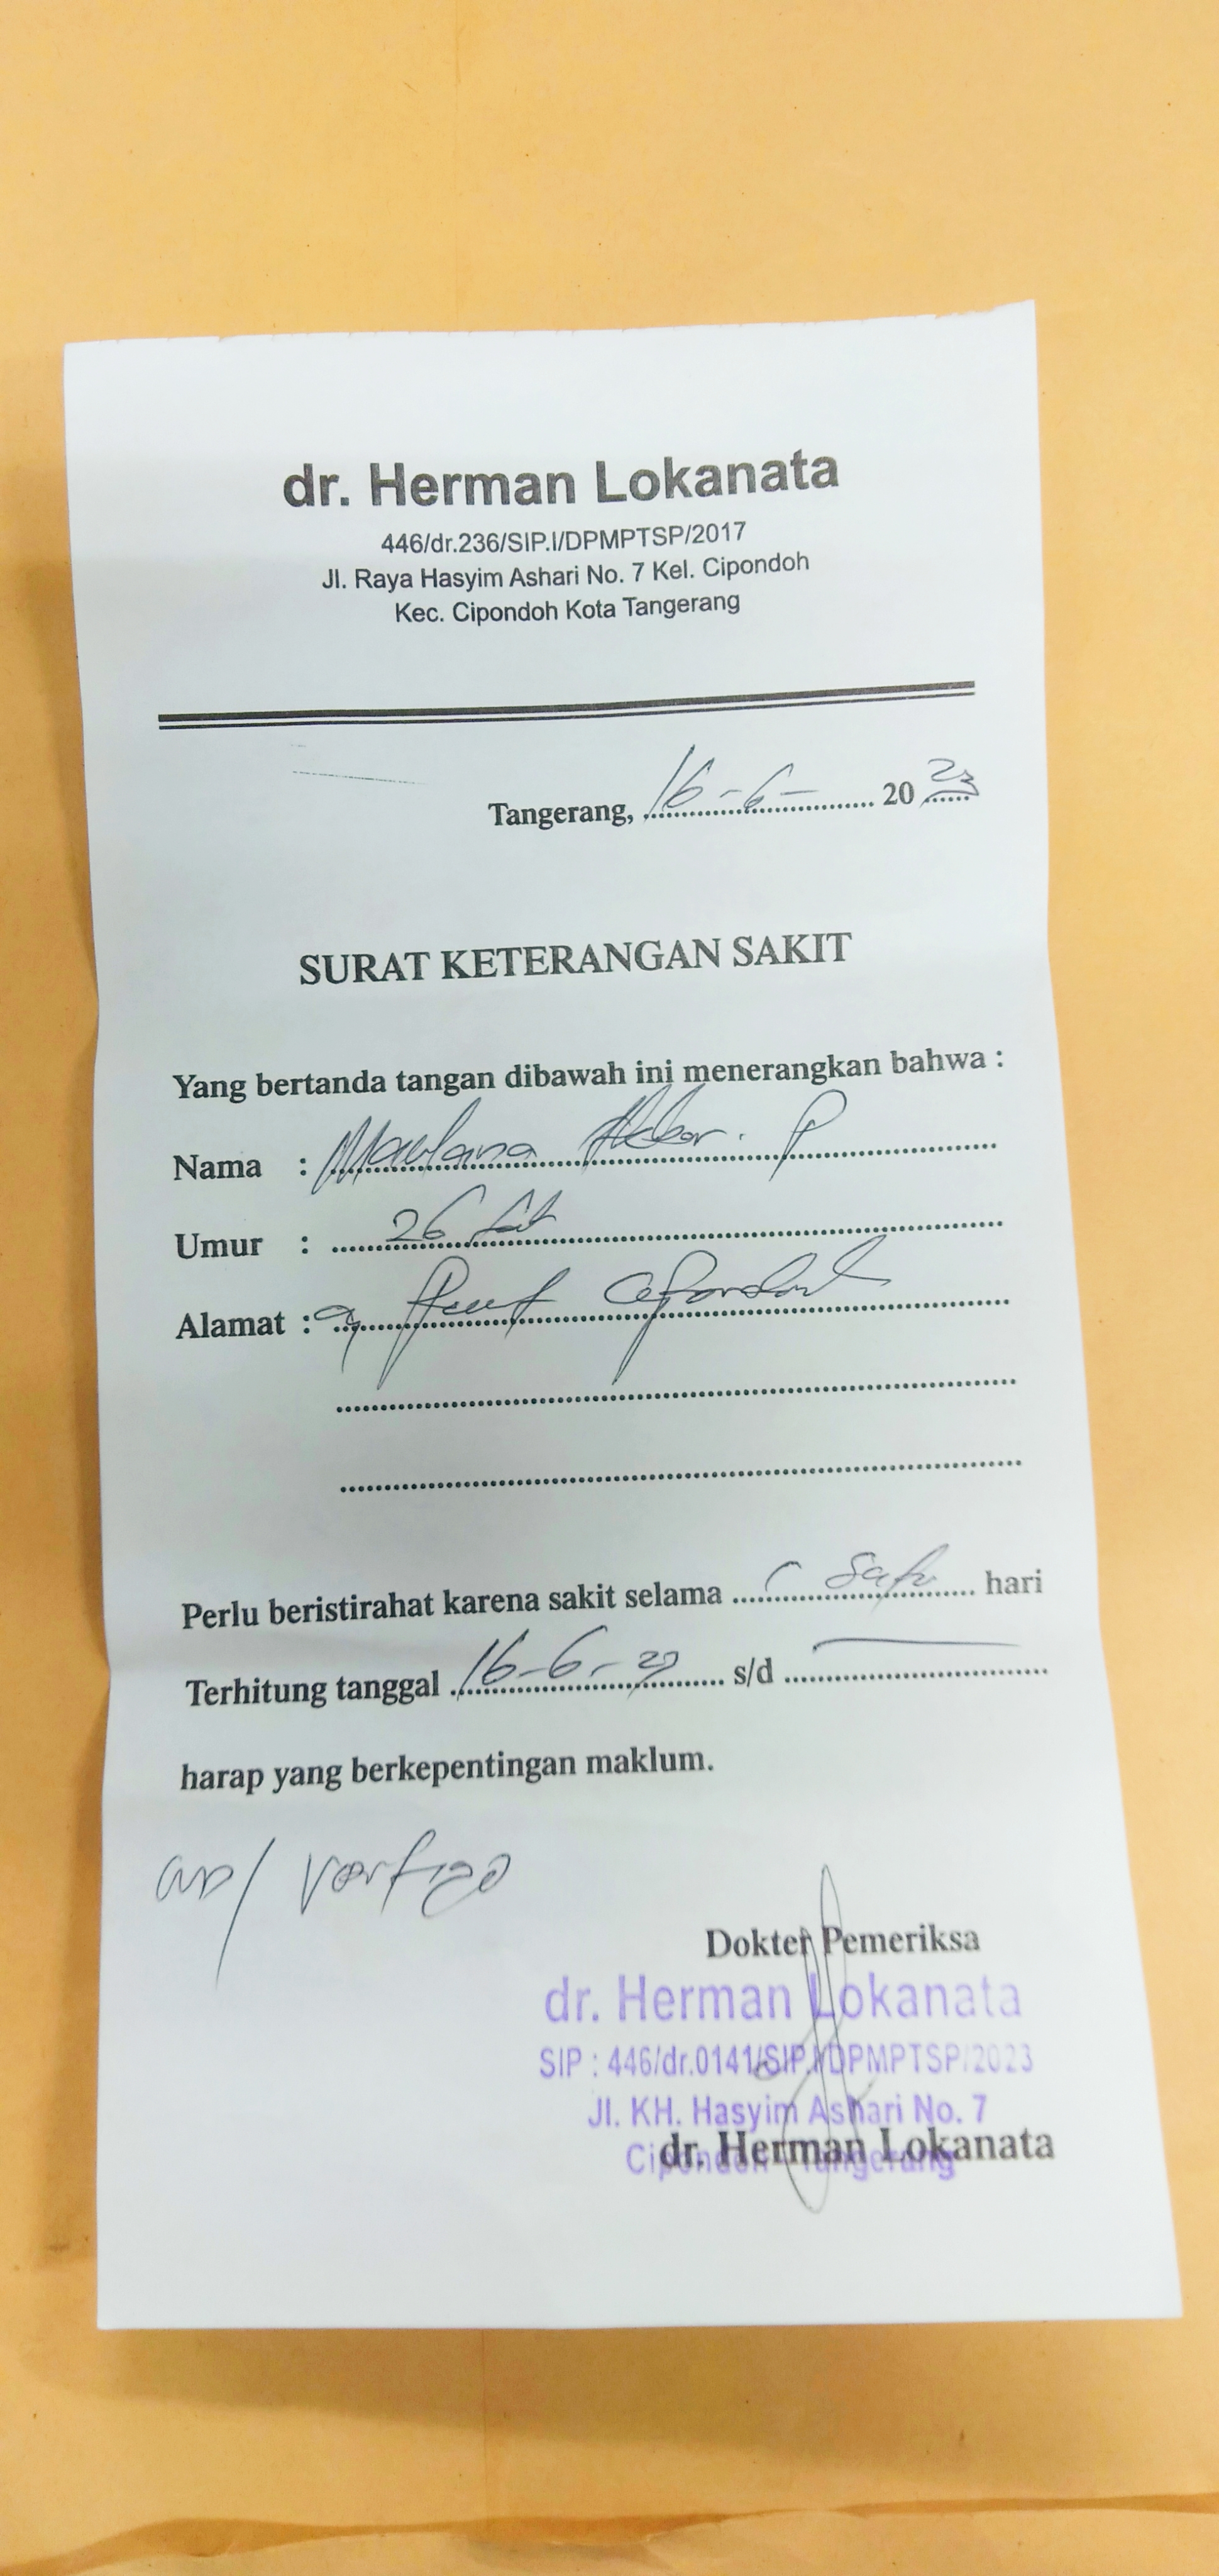 dr. Herman Lokanata
446/dr.236/SIP.I/DPMPTSP/2017
Jl. Raya Hasyim Ashari No. 7 Kel. Cipondoh
Kec. Cipondoh Kota Tangerang
Tangerang, 16-6- 20 23
SURAT KETERANGAN SAKIT
Yang bertanda tangan dibawah ini menerangkan bahwa :
Nama : Maulana Akbar. P
Umur : 26
Alamat : Cipondoh
Perlu beristirahat karena sakit selama hari
Terhitung tanggal 16-6-23 s/d
harap yang berkepentingan maklum.
vertigo
Dokter Pemeriksa
dr. Herman Lokanata
SIP : 446/dr.0141/SIP.I/DPMPTSP/2023
Jl. KH. Hasyim Ashari No. 7
Cipondoh Tangerang
dr. Herman Lokanata